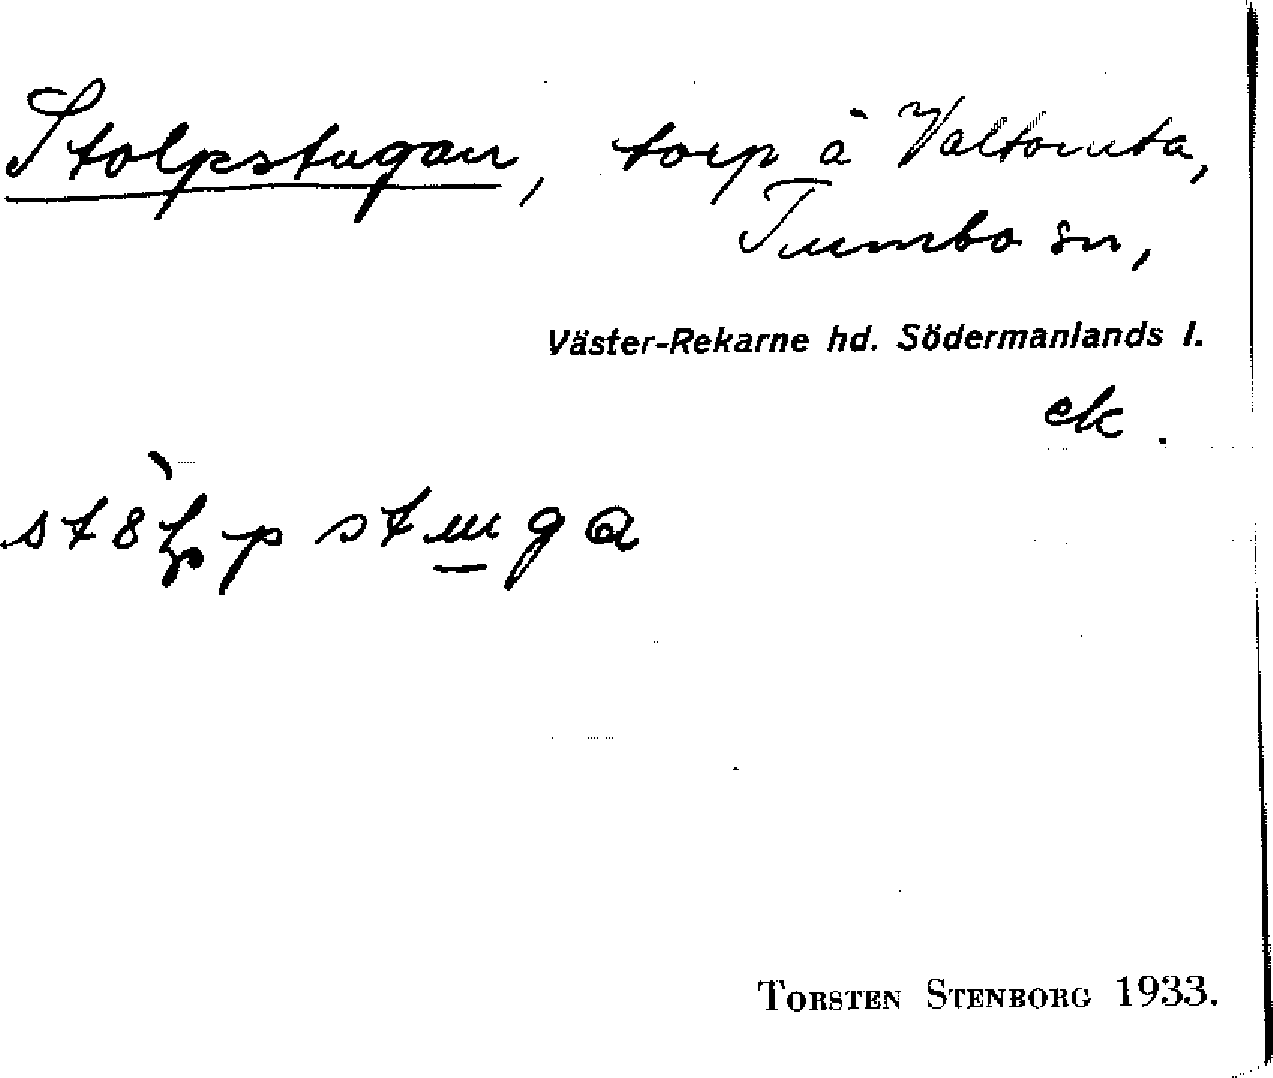 Stolpstugan, torp å Valtomta,
Tumbo sn,
Väster-Rekarne hd. Södermanlands l.
ek.
TORSTEN STENBORG 1933.